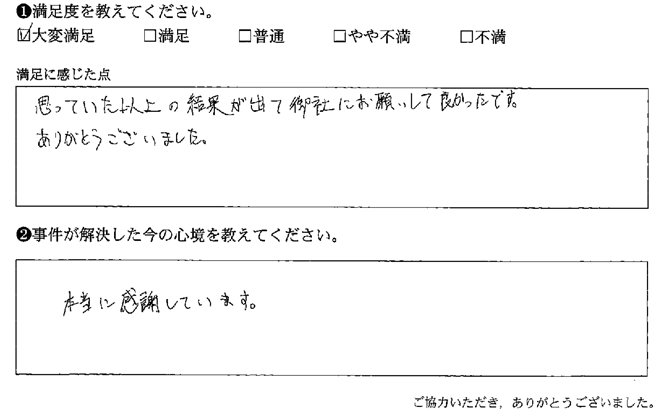 ❶満足度を教えてください。
☑大変満足 □満足 □普通 □やや不満 □不満
満足に感じた点
思っていた以上の結果が出て御社にお願いして良かったです。
ありがとうございました。
❷事件が解決した今の心境を教えてください。
本当に感謝しています。
ご協力いただき，ありがとうございました。